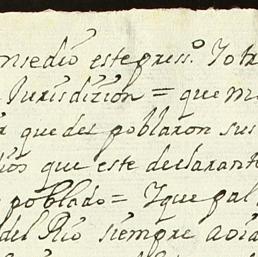 nsedio este press.º Yotr
Jurisdizion = que m
que des poblaron sus
dios que este declarant
poblado = Y que pal
del Rio siempre a oi